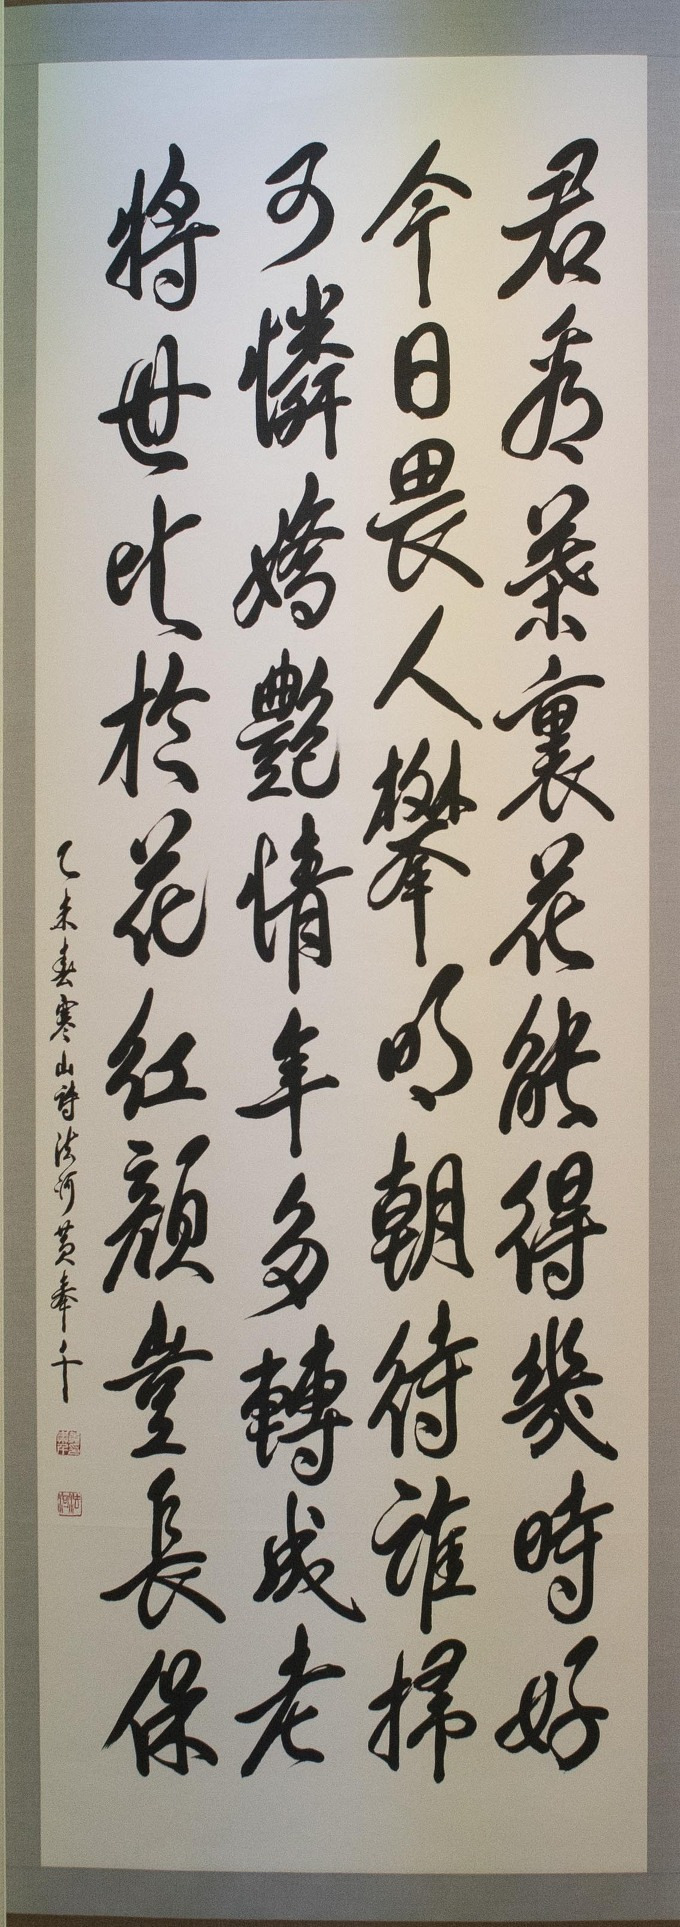 君看葉裏花能得幾時好
今日畏人攀明朝待誰掃
可憐嬌艷情年多轉成老
將世比於花紅顏豈長保
乙未春寒山詩法河黃奉午